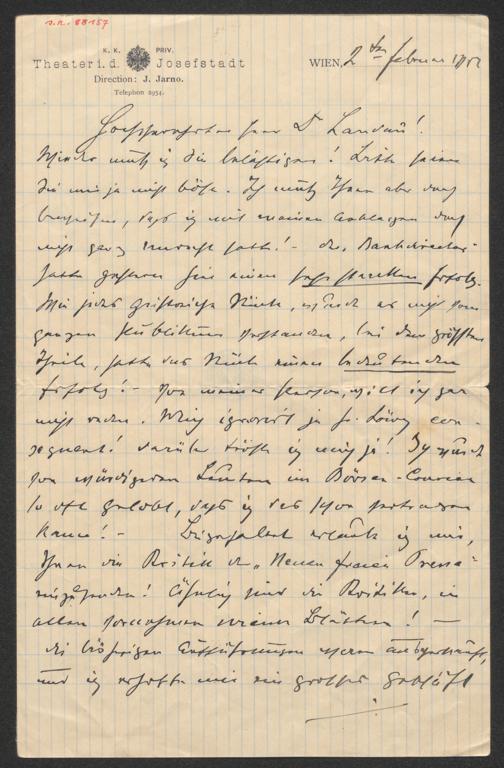 I.N. 88157
K. K. PRIV.
Theater i. d. Josefstadt
Direction: J. Jarno.
Telephon 2954.
WIEN, 2ten Februar
Hochverehrter Herr Dr Landau!
Wieder muß ich Sie belästigen! Bitte seien
Sie mir ja nicht böse. Ich muß Ihnen aber doch
beweisen, daß ich mit meinen doch
nicht ganz Unrecht hatte! – Der "Bankdirector"
hatte gestern hier einen sehr starken Erfolg.
Wie jedes Stück, wurde es nicht vom
ganzen Publikum verstanden, bei dem größten
Theile, hatte das Stück einen bedeutenden
Erfolg! – Von meiner Person, will ich gar
nicht reden. Mich ignorirt ja H. Löwy con-
sequent! Darüber tröste ich mich ja! Ich wurde
von würdigeren Leuten im Börsen-Courier
so oft gelobt, daß ich das schon vertragen
kann! – erlaube ich mir,
Ihnen die Kritik der "Neuen freien Presse"
einzusenden! Ähnlich sind die Kritiken, in
allen vornehmen Wiener Blättern! –
Die bisherigen Aufführungen waren ausverkauft,
und ich erhoffe mir ein großes Geschäft